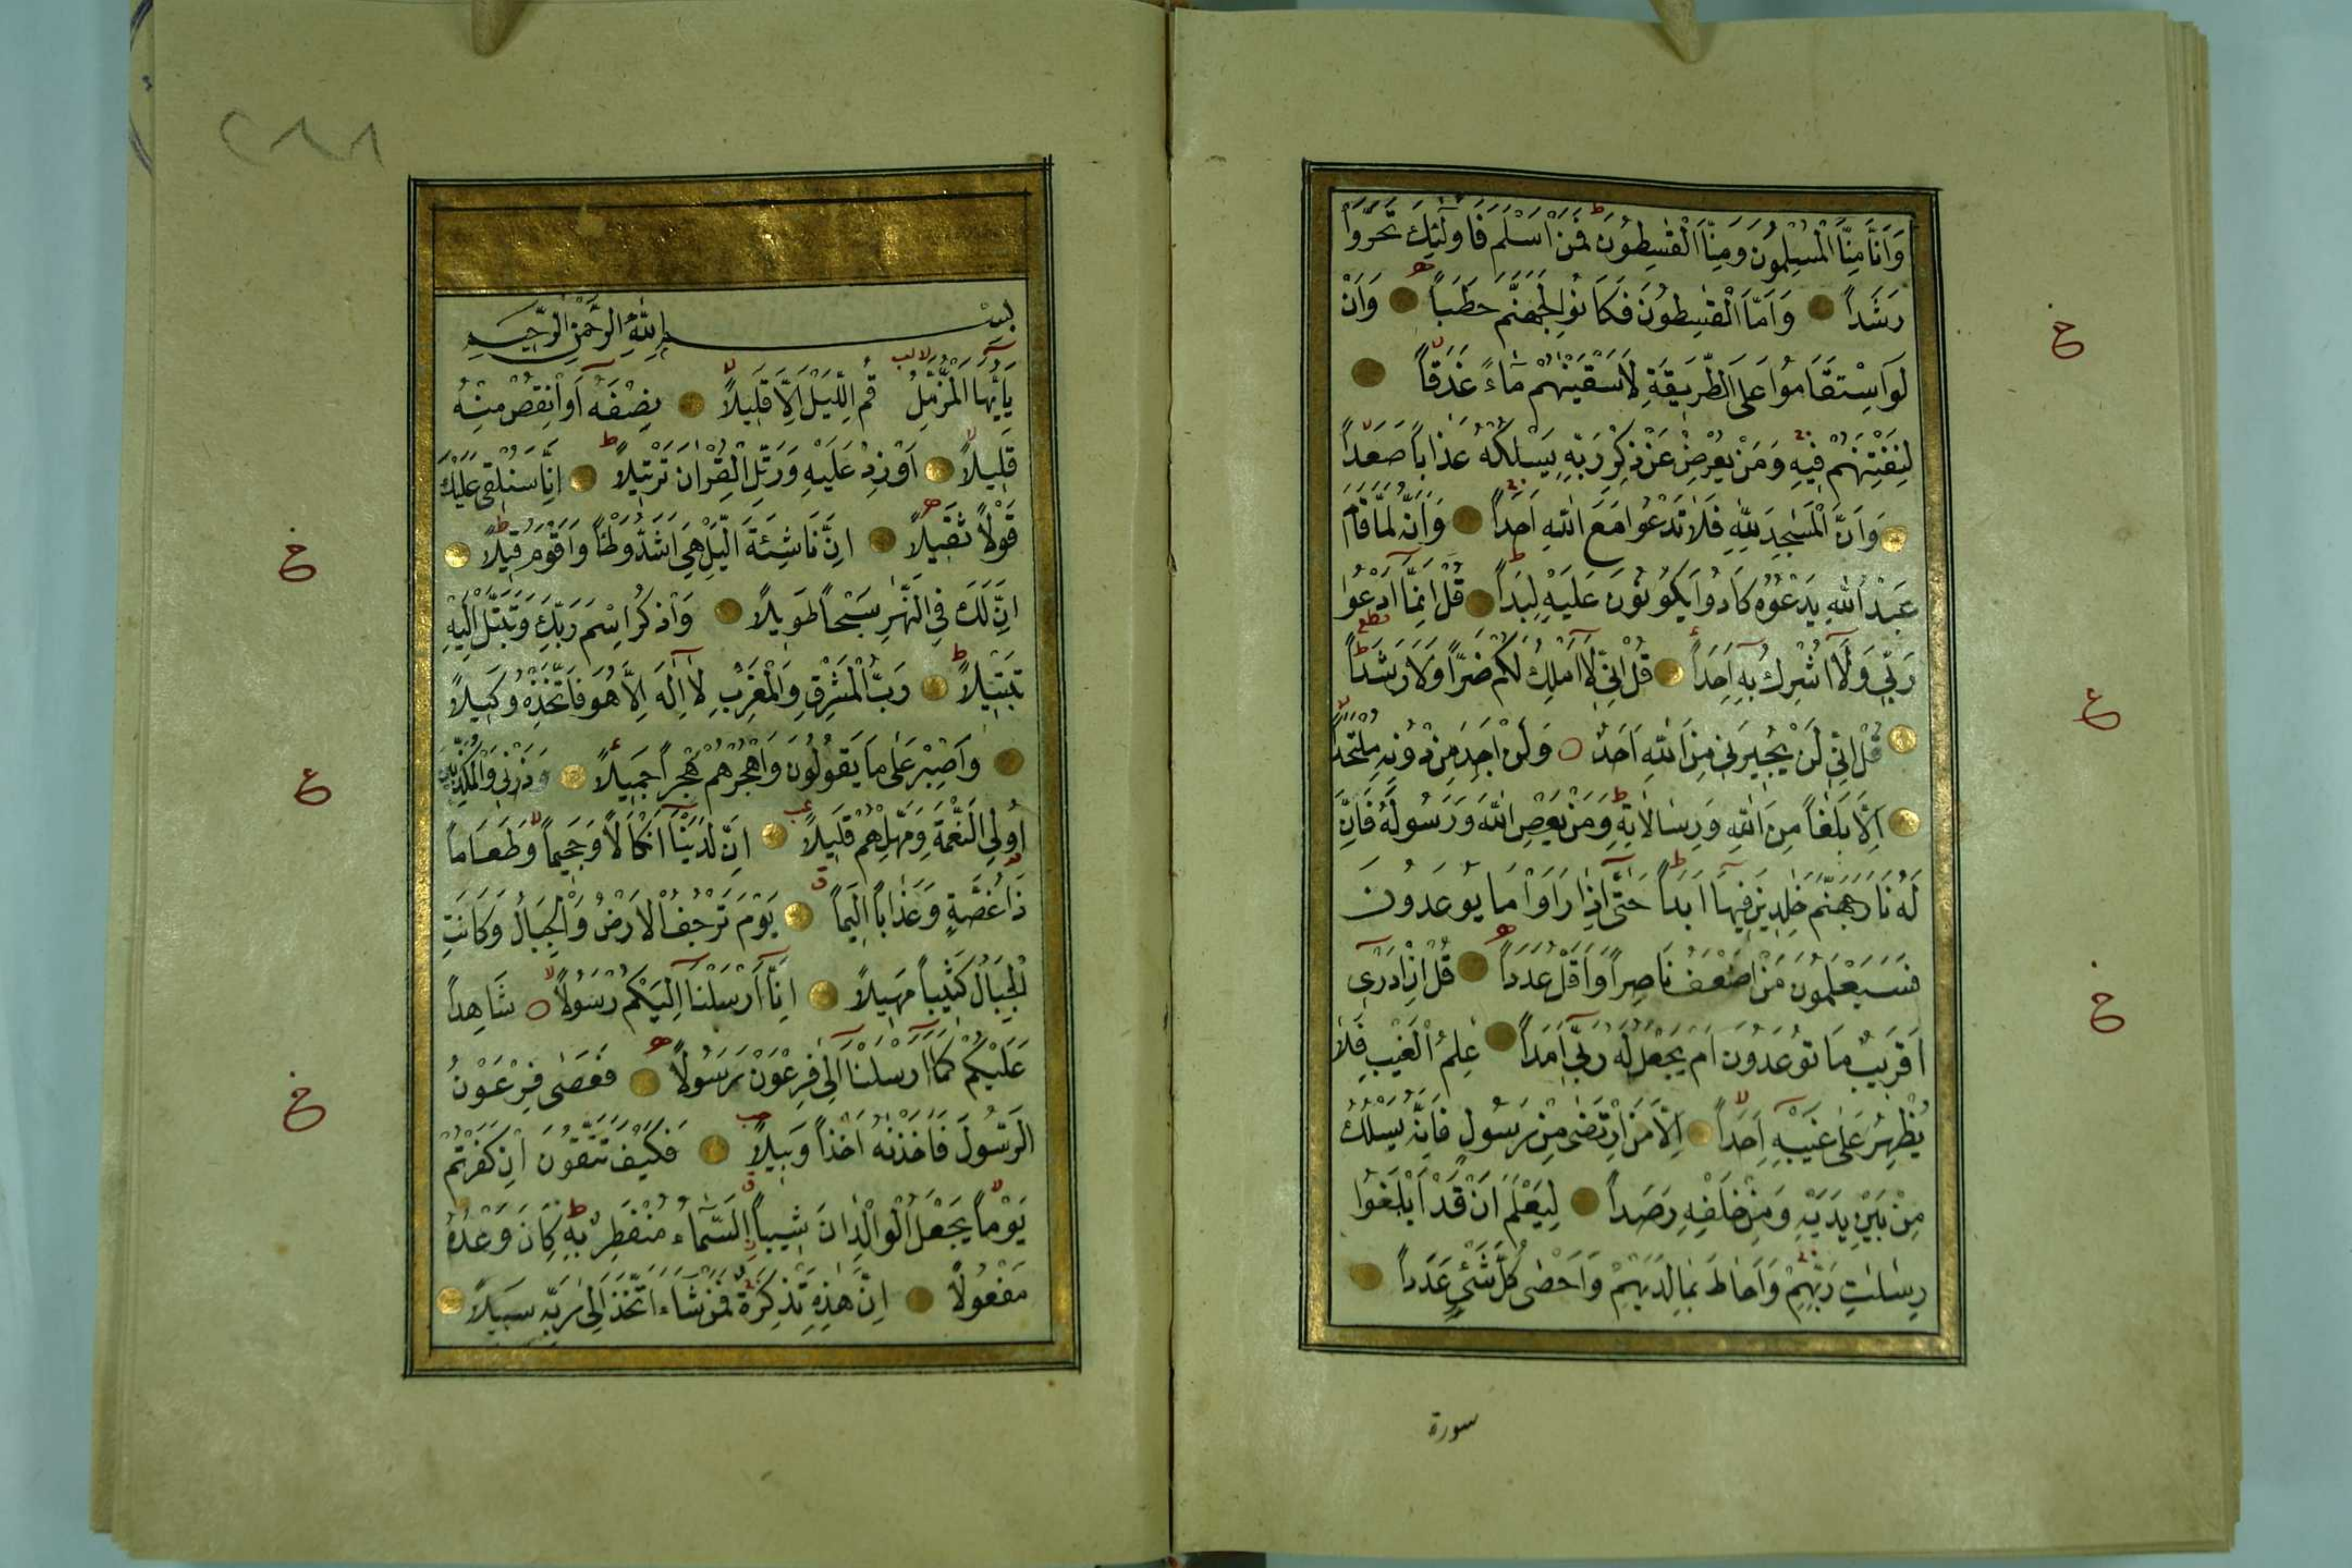 وَاَنَّا مِنَّا الْمُسْلِمُونَ وَمِنَّا الْقٰسِطُونَ فَمَنْ اَسْلَمَ فَاُولٰئِكَ تَحَرَّوْا
رَشَداً وَاَمَّا الْقٰسِطُونَ فَكَانُوا لِجَهَنَّمَ حَطَباً وَاَنْ
لَوِ اسْتَقَامُوا عَلَى الطَّرِيقَةِ لَاَسْقَيْنٰهُمْ مٰاءً غَدَقاً
لِنَفْتِنَهُمْ فِيهِ وَمَنْ يُعْرِضْ عَنْ ذِكْرِ رَبِّهِ يَسْلُكْهُ عَذَاباً صَعَداً
وَاَنَّ الْمَسٰجِدَ لِلّٰهِ فَلَا تَدْعُوا مَعَ اللّٰهِ اَحَداً وَاَنَّهُ لَمَّا قَامَ
عَبْدُ اللّٰهِ يَدْعُوهُ كَادُوا يَكُونُونَ عَلَيْهِ لِبَداً قُلْ اِنَّمَا اَدْعُوا
رَبِّي وَلَا اُشْرِكُ بِهِ اَحَداً قُلْ اِنِّي لَا اَمْلِكُ لَكُمْ ضَرًّا وَلَا رَشَداً
قُلْ اِنِّي لَنْ يُجِيرَنِي مِنَ اللّٰهِ اَحَدٌ وَلَنْ اَجِدَ مِنْ دُونِهِ مُلْتَحَداً
اِلَّا بَلَاغاً مِنَ اللّٰهِ وَرِسَالَاتِهِ وَمَنْ يَعْصِ اللّٰهَ وَرَسُولَهُ فَاِنَّ
لَهُ نَارَ جَهَنَّمَ خٰلِدِينَ فِيهَا اَبَداً حَتّٰى اِذَا رَاَوْا مَا يُوعَدُونَ
فَسَيَعْلَمُونَ مَنْ اَضْعَفُ نَاصِراً وَاَقَلُّ عَدَداً قُلْ اِنْ اَدْرِي
اَقَرِيبٌ مَا تُوعَدُونَ اَمْ يَجْعَلُ لَهُ رَبِّي اَمَداً عٰلِمُ الْغَيْبِ فَلَا
يُظْهِرُ عَلٰى غَيْبِهِ اَحَداً اِلَّا مَنِ ارْتَضٰى مِنْ رَسُولٍ فَاِنَّهُ يَسْلُكُ
مِنْ بَيْنِ يَدَيْهِ وَمِنْ خَلْفِهِ رَصَداً لِيَعْلَمَ اَنْ قَدْ اَبْلَغُوا
رِسٰلٰتِ رَبِّهِمْ وَاَحَاطَ بِمَا لَدَيْهِمْ وَاَحْصٰى كُلَّ شَيْءٍ عَدَداً
سورة
خ
ع
خ
٢٨٨
بِسْمِ اللّٰهِ الرَّحْمٰنِ الرَّحِيمِ
يَاَيُّهَا الْمُزَّمِّلُ قُمِ الَّيْلَ اِلَّا قَلِيلاً نِصْفَهُ اَوِ انْقُصْ مِنْهُ
قَلِيلاً اَوْ زِدْ عَلَيْهِ وَرَتِّلِ الْقُرْاٰنَ تَرْتِيلاً اِنَّا سَنُلْقِي عَلَيْكَ
قَوْلاً ثَقِيلاً اِنَّ نَاشِئَةَ الَّيْلِ هِيَ اَشَدُّ وَطْئاً وَاَقْوَمُ قِيلاً
اِنَّ لَكَ فِي النَّهَارِ سَبْحاً طَوِيلاً وَاذْكُرِ اسْمَ رَبِّكَ وَتَبَتَّلْ اِلَيْهِ
تَبْتِيلاً رَبُّ الْمَشْرِقِ وَالْمَغْرِبِ لَا اِلٰهَ اِلَّا هُوَ فَاتَّخِذْهُ وَكِيلاً
وَاصْبِرْ عَلٰى مَا يَقُولُونَ وَاهْجُرْهُمْ هَجْراً جَمِيلاً وَذَرْنِي وَالْمُكَذِّبِينَ
اُولِي النَّعْمَةِ وَمَهِّلْهُمْ قَلِيلاً اِنَّ لَدَيْنَا اَنْكَالاً وَجَحِيماً وَطَعَاماً
ذَا غُصَّةٍ وَعَذَاباً اَلِيماً يَوْمَ تَرْجُفُ الْاَرْضُ وَالْجِبَالُ وَكَانَتِ
الْجِبَالُ كَثِيباً مَهِيلاً اِنَّا اَرْسَلْنَا اِلَيْكُمْ رَسُولاً شَاهِداً
عَلَيْكُمْ كَمَا اَرْسَلْنَا اِلٰى فِرْعَوْنَ رَسُولاً فَعَصٰى فِرْعَوْنُ
الرَّسُولَ فَاَخَذْنٰهُ اَخْذاً وَبِيلاً فَكَيْفَ تَتَّقُونَ اِنْ كَفَرْتُمْ
يَوْماً يَجْعَلُ الْوِالْدَانَ شِيباً السَّمٰاءُ مُنْفَطِرٌ بِهِ كَانَ وَعْدُهُ
مَفْعُولاً اِنَّ هٰذِهِ تَذْكِرَةٌ فَمَنْ شَاءَ اتَّخَذَ اِلٰى رَبِّهِ سَبِيلاً
خ
ع
خ